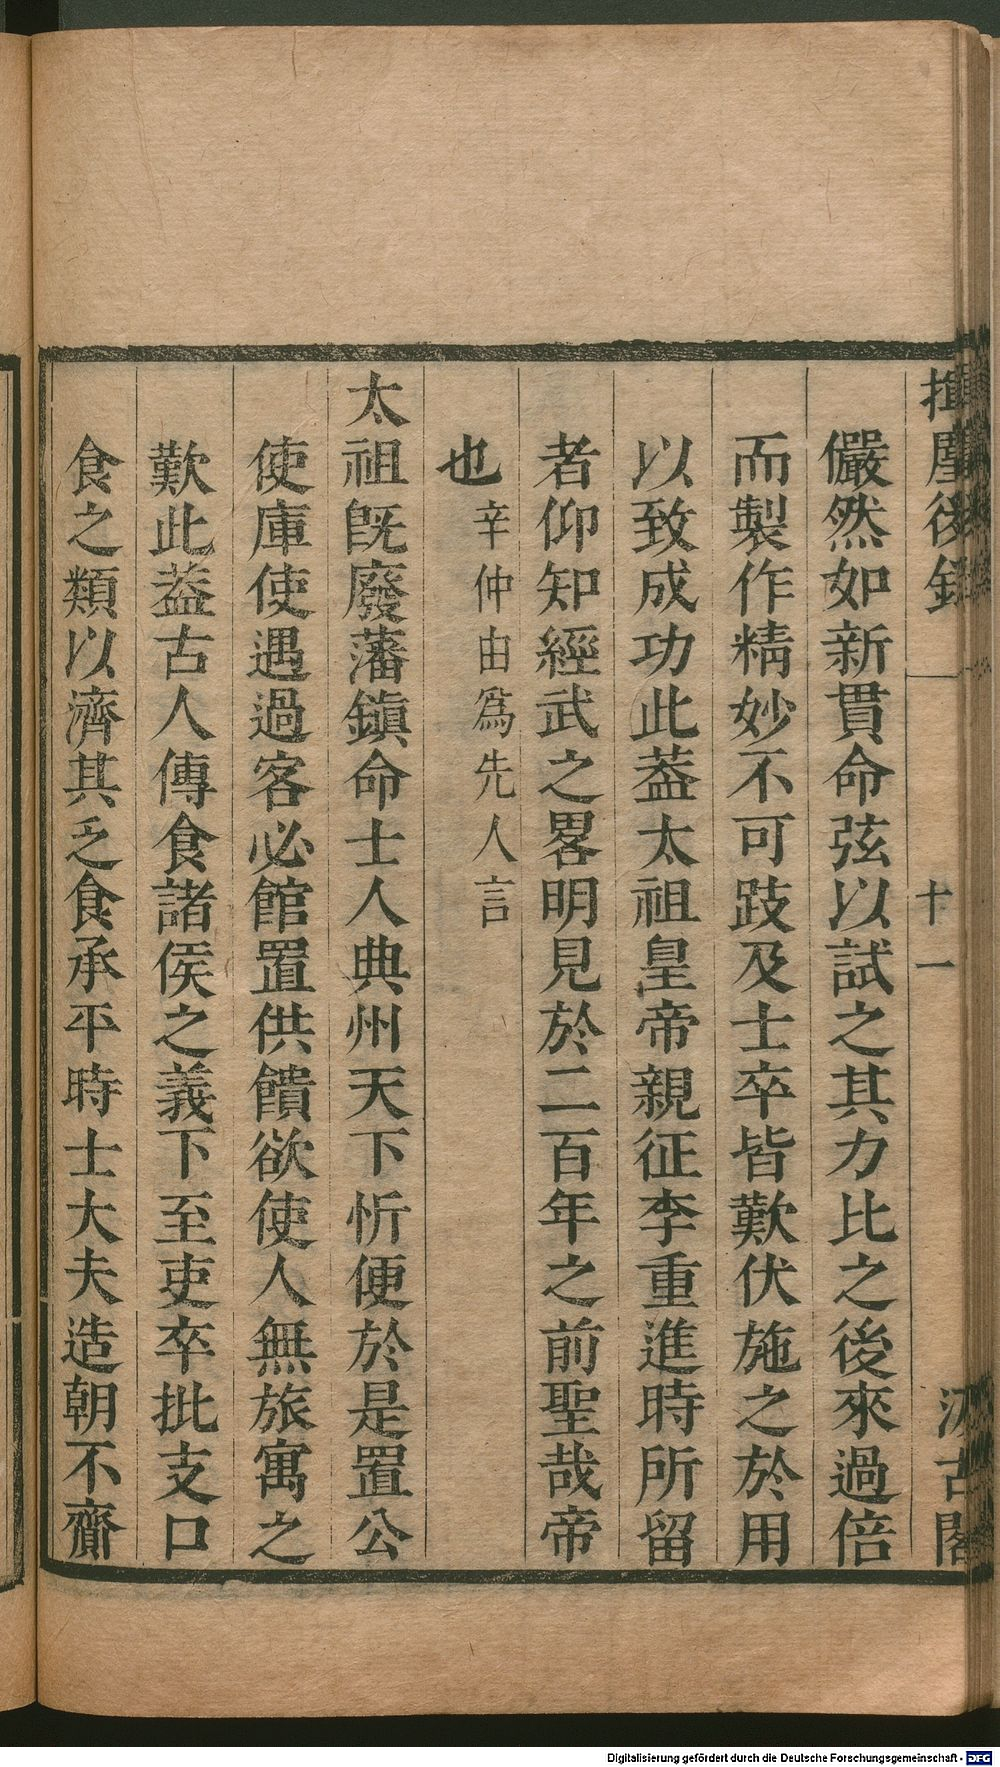 揮麈後錄
十一
汲古閣
儼然如新貫命弦以試之其力比之後來過倍
而製作精妙不可跂及士卒皆歎伏施之於用
以致成功此葢太祖皇帝親征李重進時所留
者仰知經武之畧明見於二百年之前聖哉帝
也辛仲由爲先人言
太祖旣廢藩鎭命士人典州天下忻便於是置公
使庫使遇過客必館置供饋欲使人無旅寓之
歎此葢古人傳食諸侯之義下至吏卒批支口
食之類以濟其乏食承平時士大夫造朝不齎
Digitalisierung gefördert durch die Deutsche Forschungsgemeinschaft - DFG